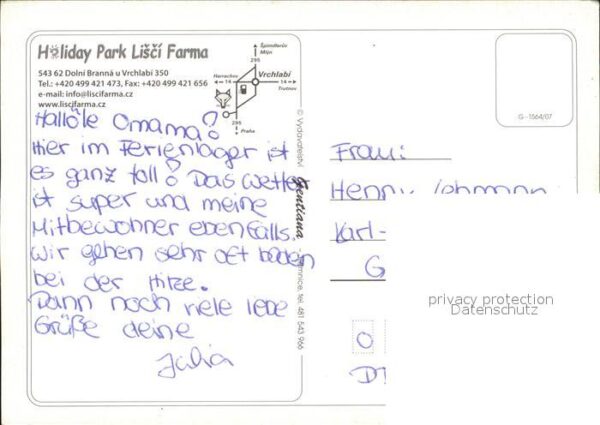 Holiday Park Liščí Farma
543 62 Dolní Branná u Vrchlabí 350
Tel.: +420 499 421 473, Fax: +420 499 421 656
e-mail: info@liscifarma.cz
www.liscifarma.cz
Špindlerův
Mlýn
295
Vrchlabí
Harrachov
14
14
Trutnov
295
Praha
G - 1564/07
Hallöle Omama!
Hier im Ferienlager ist
es ganz toll! Das Wetter
ist super und meine
Mitbewohner ebenfalls.
Wir gehen sehr oft baden
bei der Hitze.
Dann noch viele lebe
Grüße deine
Julia
© Vydavatelství Gentiana
tel. 481 543 966
Frau:
Henny Lehmann
Karl-
G
0
privacy protection
Datenschutz